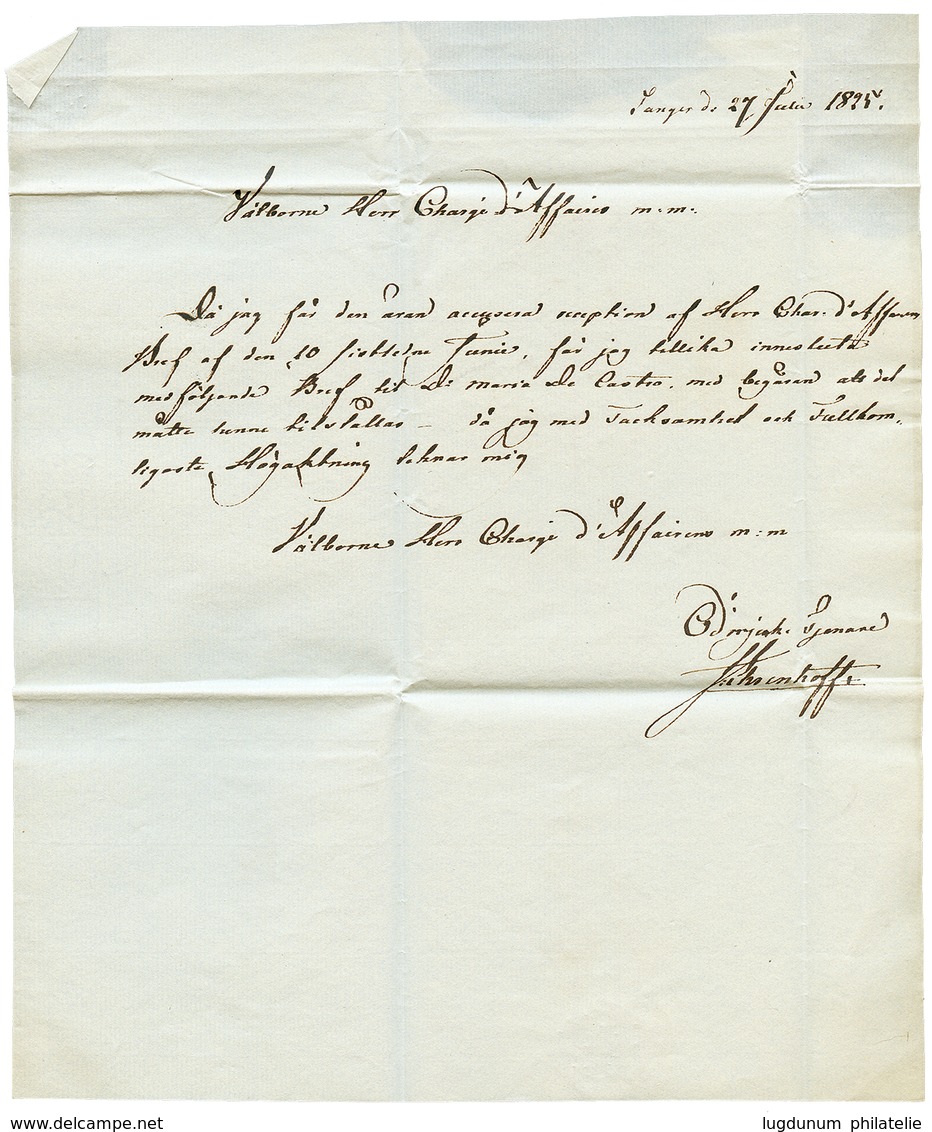 Tanger d. 27 Julii 1825.
Välborne Herr Chargé d'Affaires m: m:
Då jag får den äran accusera reception af Herr Char. d'Affairen
Bref af den 10 sistledne Junii, får jag tillika innesluta
medföljande Bref til De maria De Castro, med begäran att det
måtte kunne tilställas — då jag med Tacksamhet och Fullkom,
ligaste Högaktning teknar mig
Välborne Herr Chargé d'Affairens m: m
Ödmjuk. Tjenare
Ehrenhoff.
www.delcampe.net
lugdunum philatelie